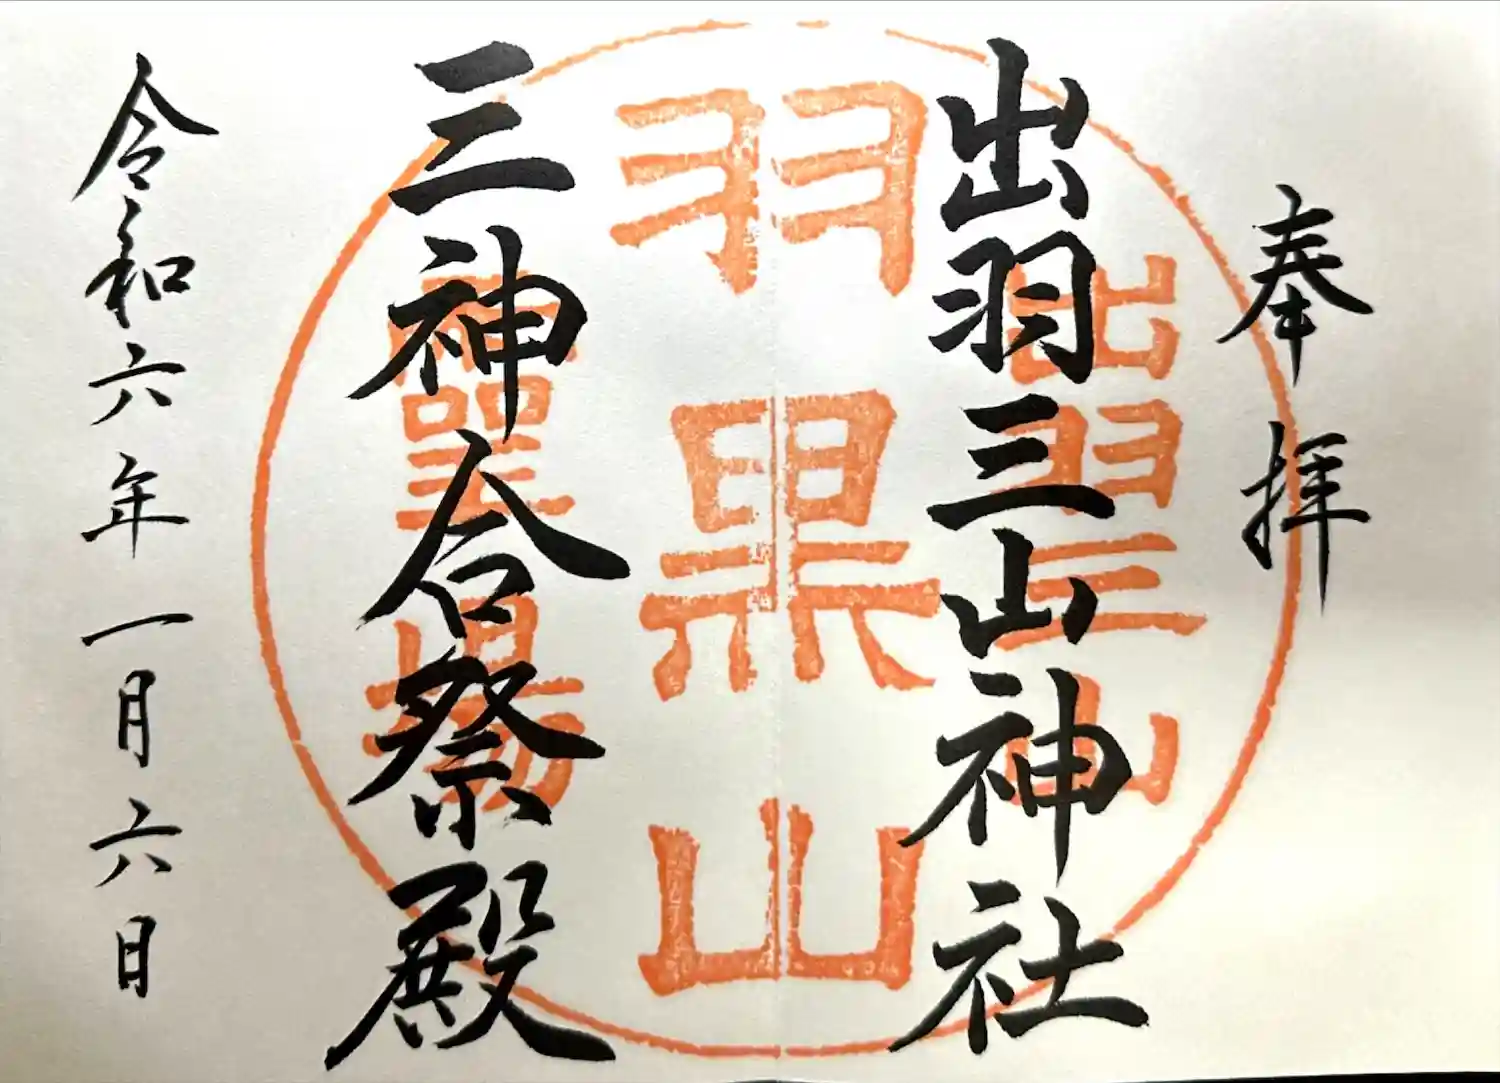 奉拝
出羽三山神社
三神合祭殿
令和六年一月六日
出羽三山
羽黒山
神聖場